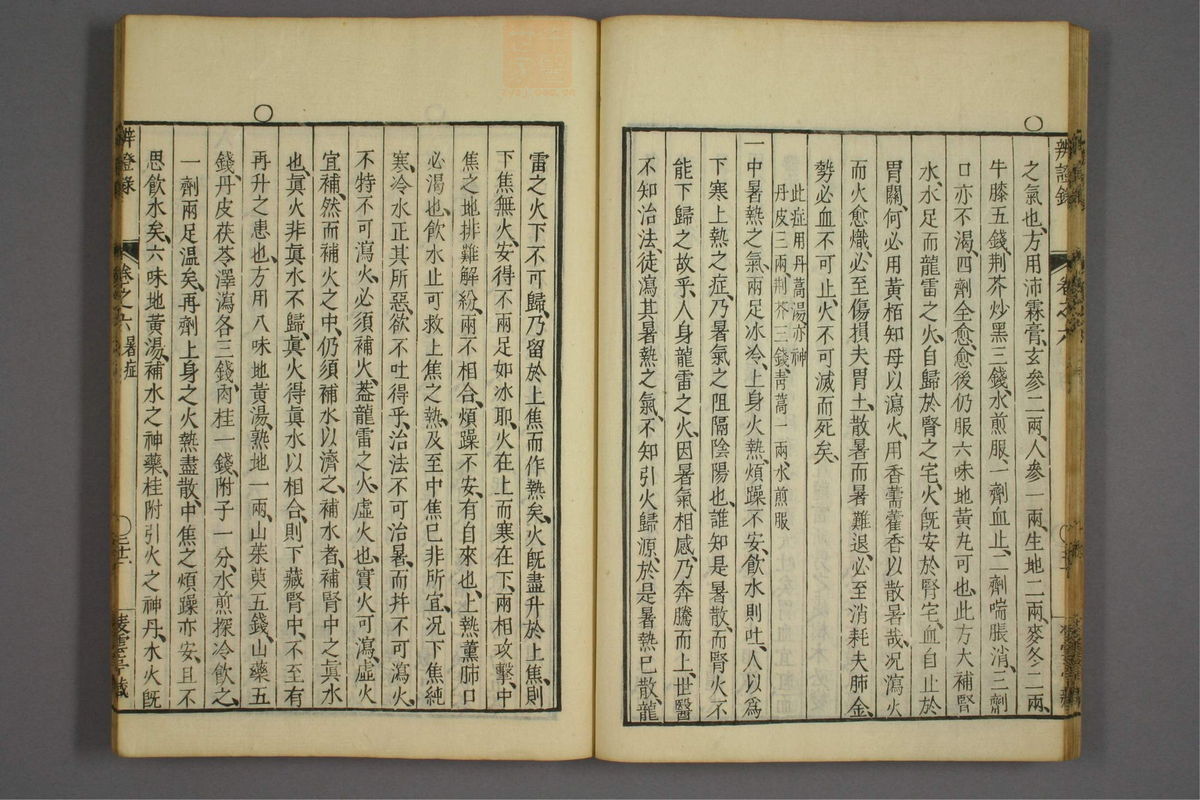 之氣也、方用沛霖膏、玄參二兩、人參一兩、生地二兩、麥冬二兩、
牛膝五錢、荆芥炒黑三錢、水煎服、一劑血止、二劑喘脹消、三劑
口亦不渴、四劑全愈、愈後仍服六味地黃丸可也、此方大補腎
水、水足而龍雷之火、自歸於腎之宅、火旣安於腎宅、血自止於
胃關、何必用黃栢知母以瀉火、用香薷藿香以散暑哉、况瀉火
而火愈熾、必至傷損夫胃土、散暑而暑難退、必至消耗夫肺金、
勢必血不可止、火不可滅而死矣、
此症用丹蒿湯亦神
丹皮三兩、荆芥三錢、靑蒿一兩、水煎服
一中暑熱之氣、兩足冰冷、上身火熱、煩躁不安、飲水則吐、人以爲
下寒上熱之症、乃暑氣之阻隔陰陽也、誰知是暑散而腎火不
能下歸之故乎、人身龍雷之火、因暑氣相感、乃奔騰而上、世醫
不知治法、徒瀉其暑熱之氣、不知引火歸源、於是暑熱已散、龍
雷之火下不可歸、乃留於上焦而作熱矣、火旣盡升於上焦、則
下焦無火、安得不兩足如冰耶、火在上而寒在下、兩相攻擊、中
焦之地排難解紛、兩不相合、煩躁不安、有自來也、上熱薰肺口
必渴也、飲水止可救上焦之熱、及至中焦已非所宜、况下焦純
寒、冷水正其所惡、欲不吐得乎、治法不可治暑、而并不可瀉火、
不特不可瀉火、必須補火、蓋龍雷之火、虛火也、實火可瀉、虛火
宜補、然而補火之中、仍須補水以濟之、補水者、補腎中之眞水
也、眞火非眞水不歸、眞火得眞水以相合、則下藏腎中、不至有
再升之患也、方用八味地黃湯、熟地一兩、山茱萸五錢、山藥五
錢、丹皮茯苓澤瀉各三錢、肉桂一錢、附子一分、水煎探冷飲之、
一劑兩足温矣、再劑上身之火熱盡散、中焦之煩躁亦安、且不
思飲水矣、六味地黃湯、補水之神藥、桂附引火之神丹、水火旣
辨證錄
卷之六暑症